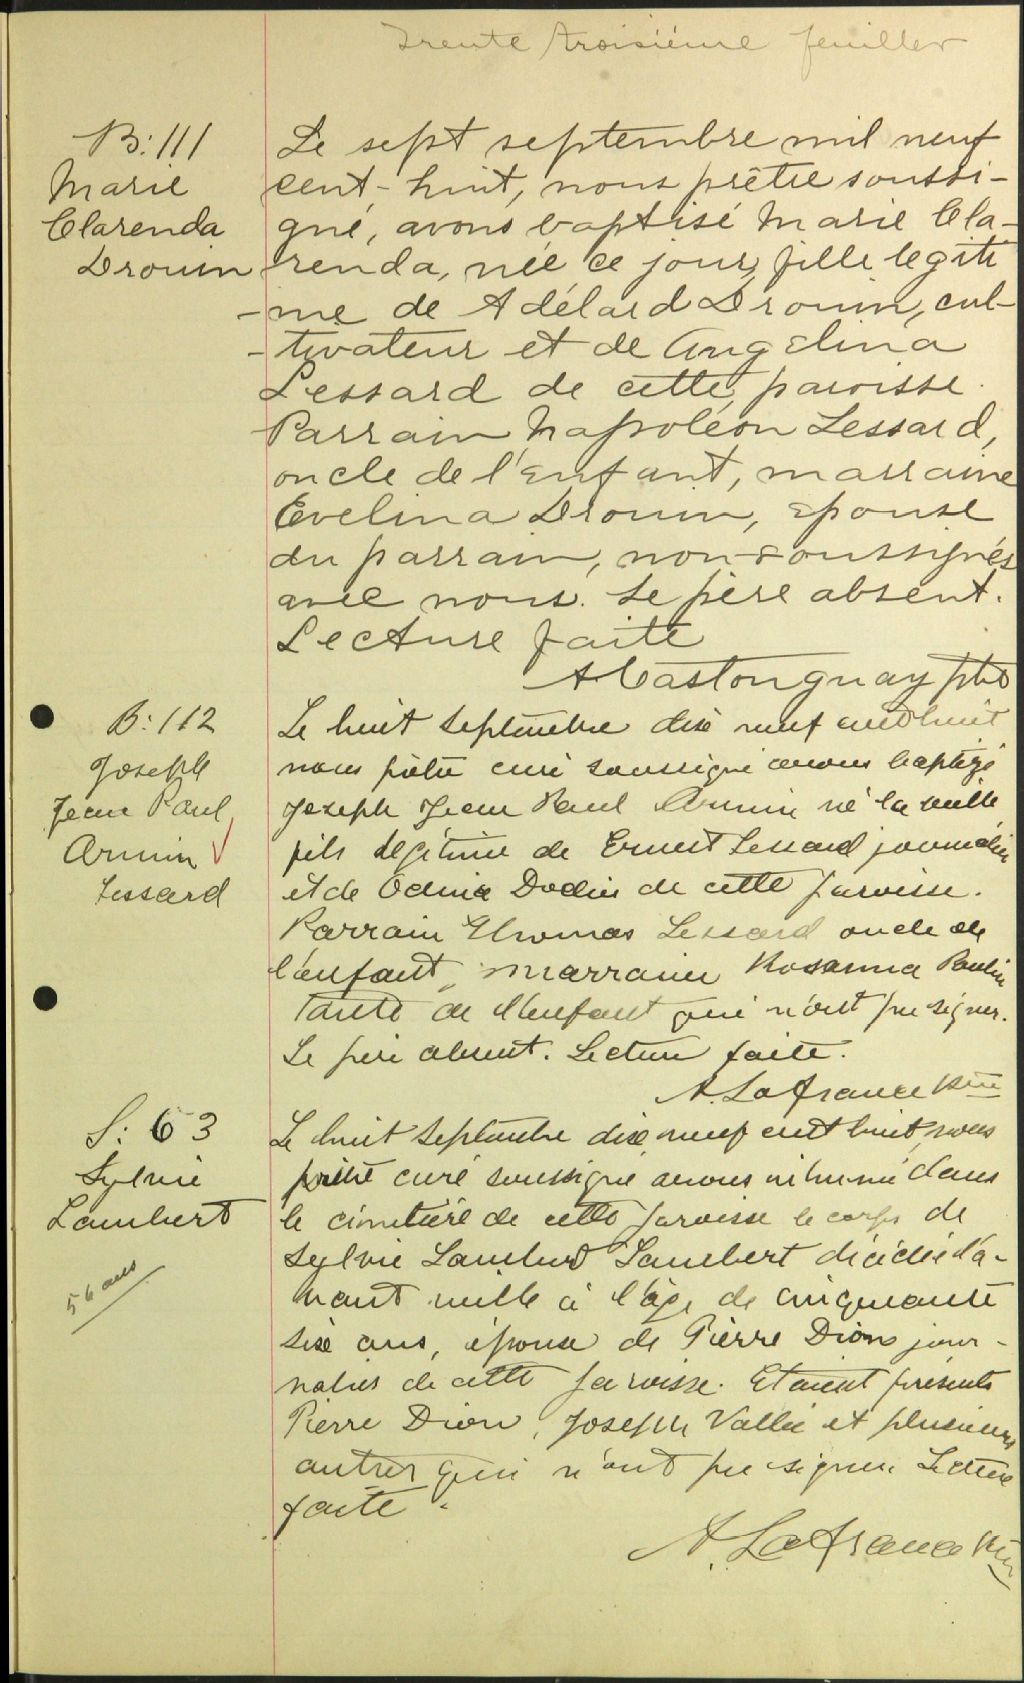 Trente troisième feuillet
B: 111
Marie
Clarenda
Drouin
Le sept septembre mil neuf
cent-huit, nous prêtre soussi-
gné, avons baptisé Marie Cla-
renda, née ce jour, fille legiti
-me de Adélard Drouin, cul-
-tivateur et de Angelina
Lessard de cette paroisse.
Parrain Napoléon Lessard,
oncle de l'enfant, marraine
Evelina Drouin, épouse
du parrain, non-soussignés
avec nous. Le père absent.
Lecture faite
A Castonguay ptre
B: 112
Joseph
Jean Paul
Armin
Lessard
Le huit Septembre dix neuf cent huit
nous prêtre curé soussigné avons baptizé
Joseph Jean Paul Armin né la veille
fils légitime de Ernest Lessard journalier
et de Dodier de cette paroisse.
Parrain Thomas Lessard oncle de
l'enfant, marraine Rosanna Poulin
tante de l'enfant qui n'ont pu signer.
Le père absent. Lecture faite.
A. Lafrance Ptre
S: 63
Sylvie
Lambert
56 ans
Le huit Septembre dix neuf cent huit, nous
prêtre curé soussigné avons inhumé dans
le cimetière de cette paroisse le corps de
Sylvie Lambert Lambert décédée l'a-
vant veille à l'âge de cinquante
six ans, épouse de Pierre Dion jour-
nalier de cette paroisse. Etaient présents
Pierre Dion, Joseph Vallée et plusieurs
autres qui n'ont pu signer. Lecture
faite.
A. Lafrance Ptre